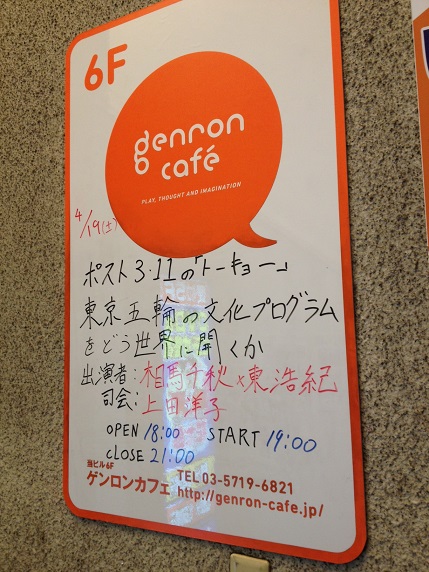 6F
genron
café
PLAY, THOUGHT AND IMAGINATION
4/19(土)
ポスト3・11の「トーキョー」
東京五輪の文化プログラム
をどう世界に開くか
出演者:相馬千秋×東浩紀
司会:上田洋子
OPEN 18:00 START 19:00
CLOSE 21:00
当ビル6F
ゲンロンカフェ
TEL 03-5719-6821
http://genron-cafe.jp/